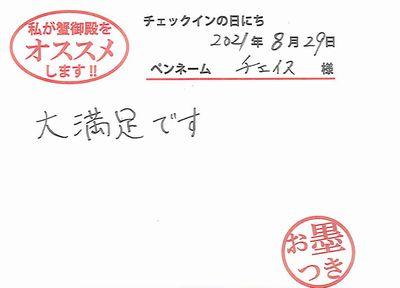 私が蟹御殿を
オススメ
します!!
チェックインの日にち
2021年 8月 29日
ペンネーム チェイス 様
大満足です
お墨
つき